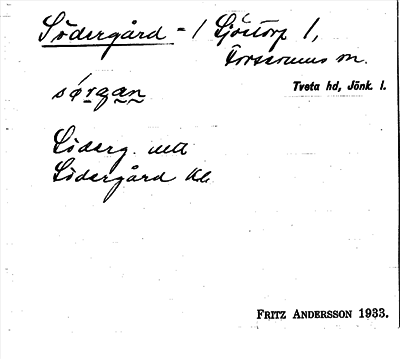 Södergård = / Sjöstorp 1,
Forserums sn.
Tveta hd, Jönk. l.
sǿrgan
Söderg. utt
Södergård Kb
FRITZ ANDERSSON 1933.